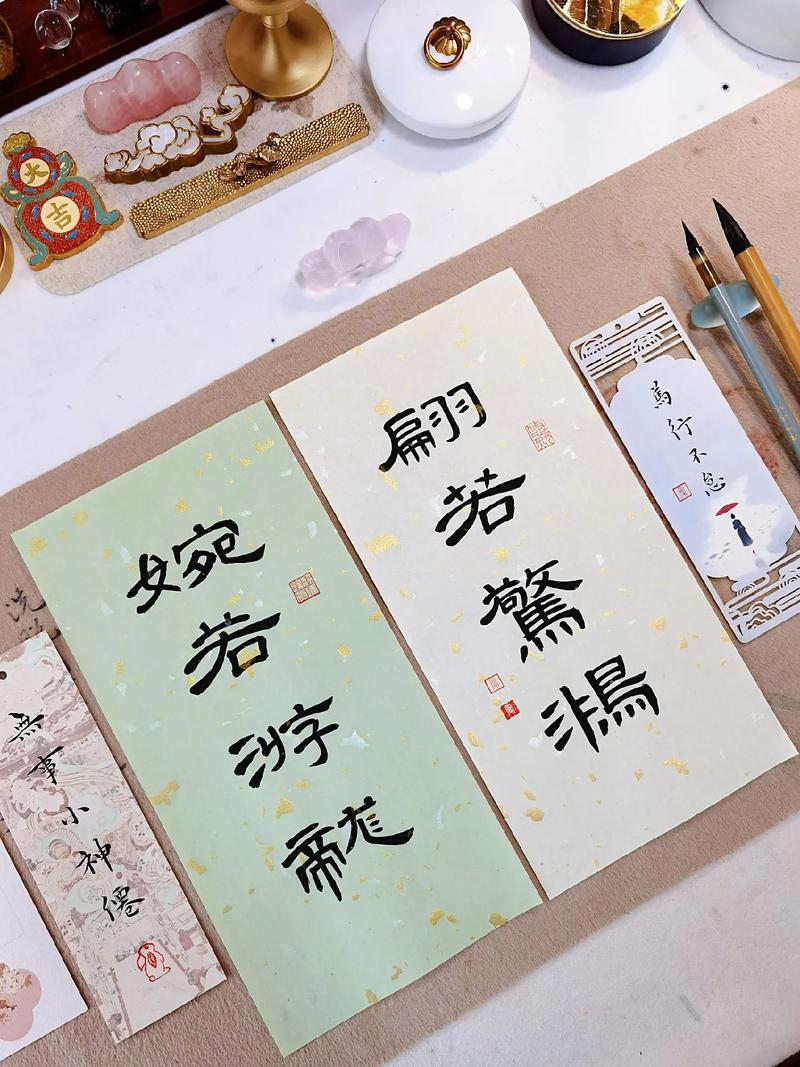 篤行不怠
翩若驚鴻
婉若游龍
無事小神僊
大吉
洗